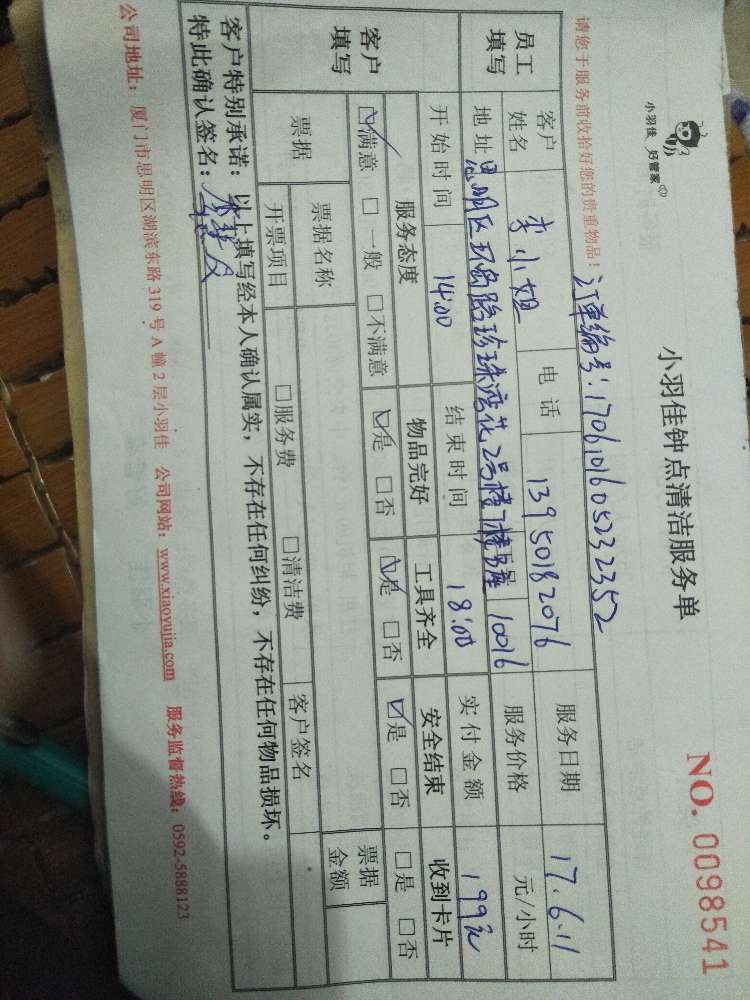 小羽佳 好管家
小羽佳钟点清洁服务单
NO. 0098541
请您于服务前收拾好您的贵重物品!
订单编号:1706101605232352
员工填写
客户姓名 李小姐 电话 13950182076 服务日期 17.6.11
地址 思明区环岛路珍珠湾花 2号楼 1006 服务价格 元/小时
开始时间 14:00 结束时间 18:00 实付金额 199元
客户填写
服务态度 物品完好 工具齐全 安全结束 收到卡片
☑满意 □一般 □不满意 ☑是 □否 ☑是 □否 ☑是 □否 □是 □否
票据 票据名称 票据金额
开票项目 □服务费 □清洁费 客户签名
客户特别承诺:以上填写经本人确认属实,不存在任何纠纷,不存在任何物品损坏。
特此确认签名:
公司地址: 厦门市思明区湖滨东路 319 号 A 幢 2 层小羽佳 公司网站: www.xiaoyujia.com 服务监督热线: 0592-5888123